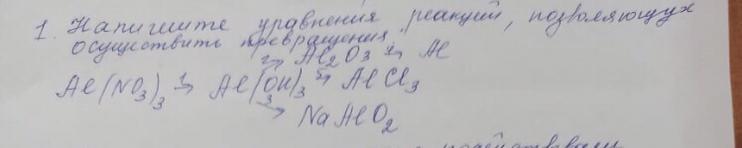 1. Напишите уравнения реакций, позволяющих
осуществить превращения.
2→ Al2O3 4→ Al
Al(NO3)3 1→ Al(OH)3 5→ AlCl3
3→ NaAlO2